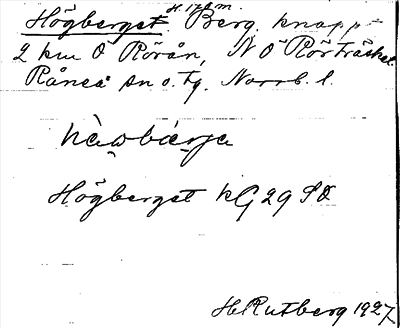 Högberget H. 178 m. Berg. knappt
2 km Ö Rörån, N Ö Rörträsket.
Råneå sn o. tg. Norrb. l.
Högberget kG 29 SO
H. Rutberg 1927.